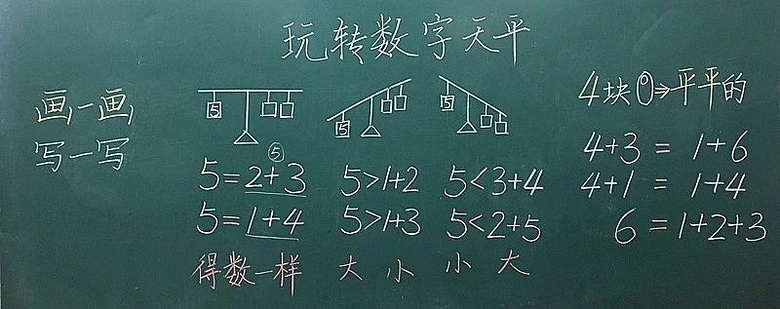 玩转数字天平
画一画
写一写
5
5
5
4块①→平平的
⑤
5=2+3
5=1+4
得数一样
5>1+2
5>1+3
大 小
5<3+4
5<2+5
小 大
4+3=1+6
4+1=1+4
6=1+2+3